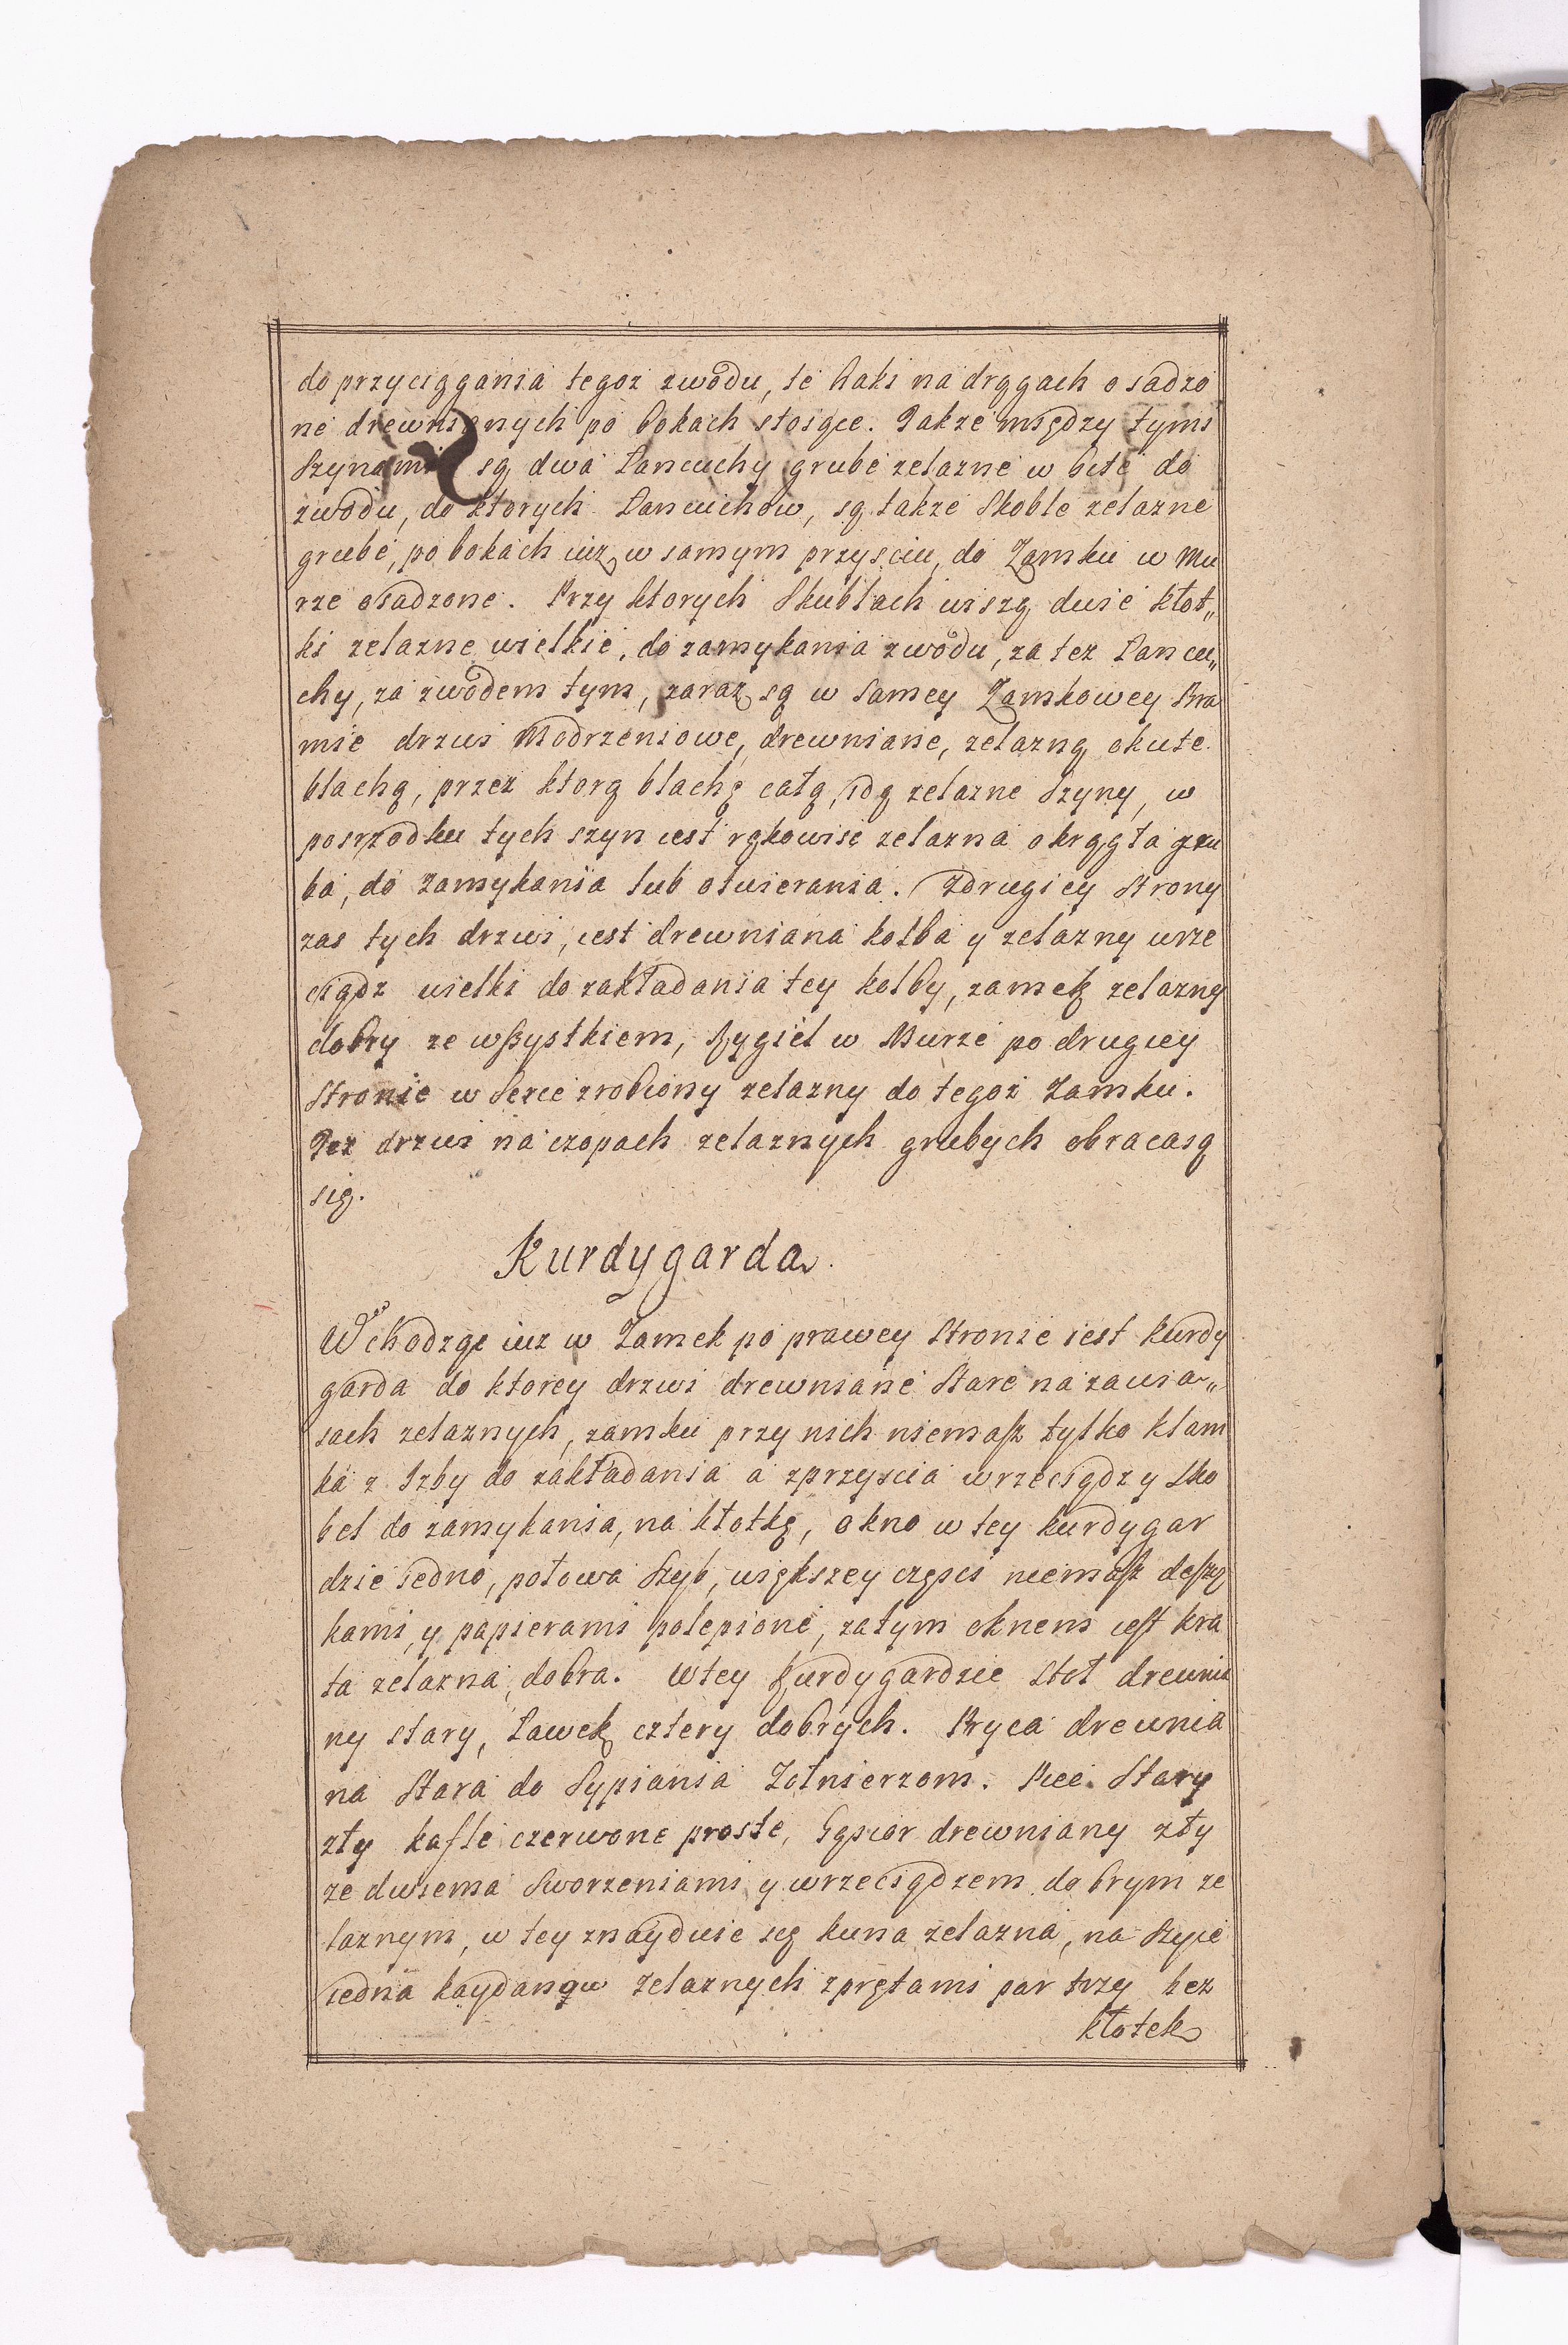 do przyciągania tegoz zwodu, te haki na drągach osadzo
ne drewnianych po bokach stoiące. Takze między tymi
Szynami są dwa Łancuchy grube zelazne w bite do
zwodu, do ktorych Łancuchow, są takze Skoble zelazne
grube, po bokach iuz w samym przysciu, do Zamku w Mu
rze osadzone. Przy ktorych Skublach wiszą dwie kłot„
ki zelazne wielkie, do zamykania zwodu, za tez Łancu„
chy, za zwodem tym, zaraz są w Samey Zamkowey Bra
mie drzwi Modrzeniowe, drewniane, zelazną okute
blachą, przez ktorą blachę całą, idą zelazne Szyny, w
posrzodku tych szyn iest rękowisc zelazna okrągła gru
ba, do zamykania lub otwierania. Zdrugiey Strony
zas tych drzwi, iest drewniana kolba y zelazny wrze
ciądz wielki do zakładania tey kolby, zamek zelazny
dobry ze wszystkiem, Rygiel w Murze po drugiey
Stronie w Sercé zrobiony zelazny do tegoz Zamku.
Tez drzwi na czopach zelaznych grubych obracaią
się.
Kurdygarda.
Wchodząc iuz w Zamek po prawey Stronie iest kurdy
garda do ktorey drzwi drewniane Stare na zawia„
sach zelaznych, zamku przy nich niemasz tylko klam
ka z Izby do zakładania a zprzyscia wrzeciądz y Sko
bel do zamykania, na kłotkę, okno w tey kurdygar
dzie iedno, połowa Szyb, większey częsci niemasz deszcz
kami, y papierami polepione, zatym oknem iest kra
ta zelazna, dobra. W tey Kurdygardzie Stoł drewnia
ny stary, Ławek cztery dobrych. Pryca drewnia
na Stara do Sypiania Zołnierzom. Piec Stary
zły kafle czerwone proste, Gąsior drewniany zły
ze dwiema Sworzeniami y wrzeciądzem dobrym ze
laznym, w tey znayduie się kuna zelazna, na Szyie
iedna kaydanow zelaznych z prętami par trzy bez
kłotek